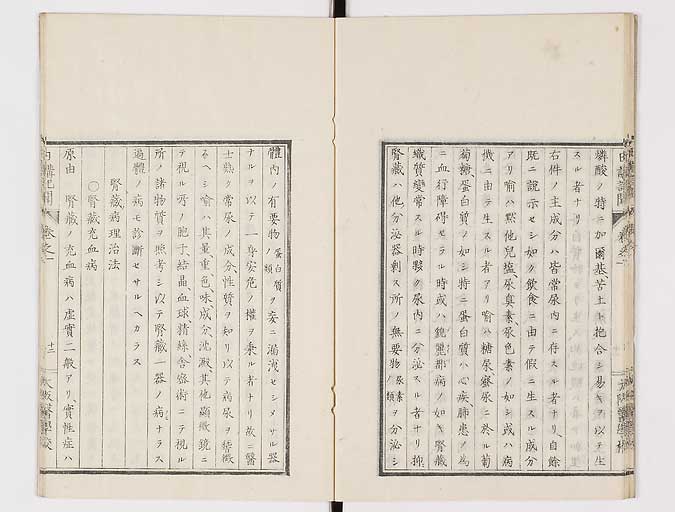 燐酸ノ特ニ加爾基、苦土ト抱合シ易キヲ以テ生
スル者ナリ
右件ノ主成分ハ皆常尿内ニ存スル者ナリ、自餘
既ニ説示セシ如ク飲食ニ由テ假ニ生スル成分
アリ喻ハ黙他兒塩尿臭素尿色素ノ如シ或ハ病
機ニ由テ生スル者アリ喻ハ糖尿崩尿ニ於ル葡
萄糖蛋白質ノ如シ特ニ蛋白質ハ心疾肺患ノ為
ニ血行障碍セラル時或ハ貌麗那病ノ如キ腎藏
織質變常スル時骸ク尿内ニ分泌スル者ナリ抑
腎藏ハ他分泌器剩ス所ノ無要物尿素ノ類ヲ分泌シ
體内ノ有要物蛋白質ノ類ヲ妄ニ漏泄セシメサル器
ナルヲ以テ一身安危ノ權ヲ秉ル者ナリ故ニ醫
士熟ク常尿ノ成分、性質ヲ知リ以テ病尿ヲ
ルヘシ喻ハ其量、重、色、味、成分、沈澱、其他顯微鏡ニ
テ視ル所ノ胞子、結晶、血球、精絲、舎密術ニテ視ル
所ノ諸物質ヲ照考シ以テ腎藏一器ノ病ナラス
遍體ノ病モ診斷セサルヘカラス
腎藏病理治法
○腎藏充血病
原由 腎藏ノ充血病ハ虚實二般アリ、實性症ハ
十二